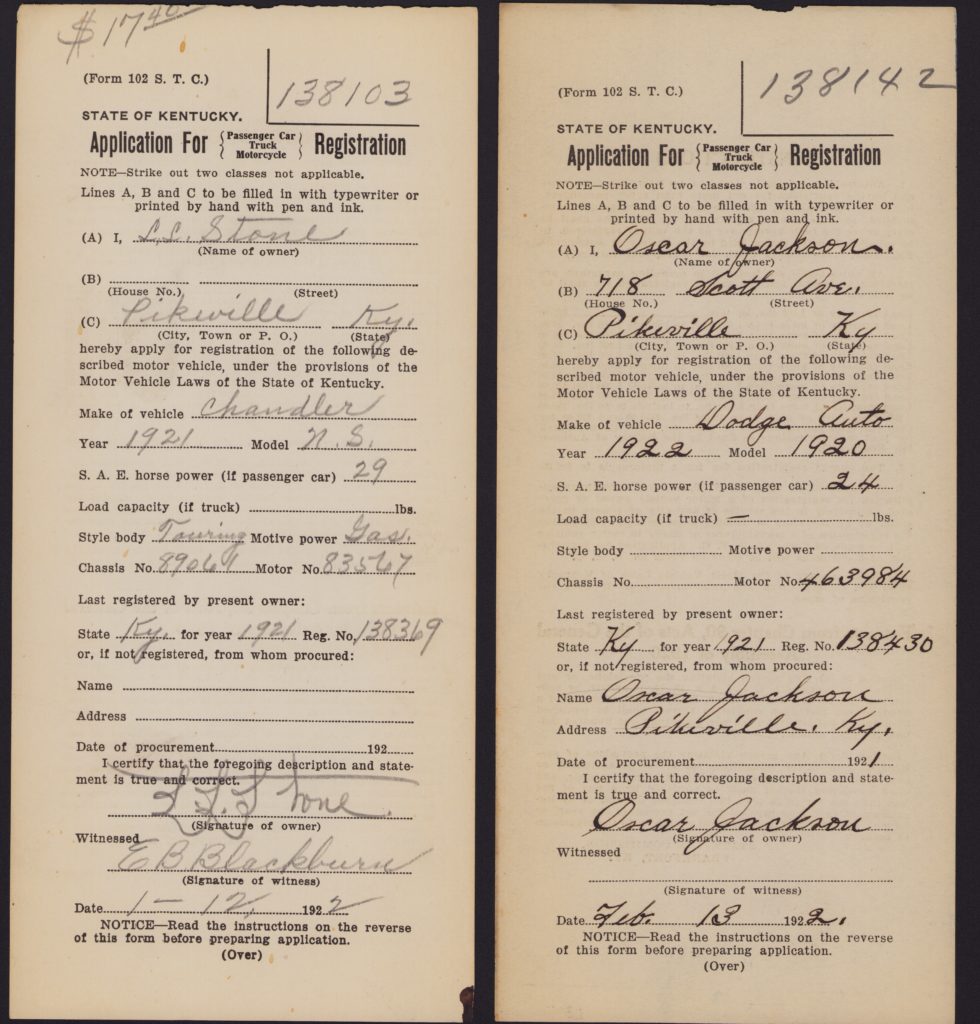 $ 17.40
(Form 102 S. T. C.)
138103
STATE OF KENTUCKY.
Application For { Passenger Car Truck Motorcycle } Registration
NOTE—Strike out two classes not applicable.
Lines A, B and C to be filled in with typewriter or
printed by hand with pen and ink.
(A) I, L.L. Stone
(Name of owner)
(B)
(House No.) (Street)
(C) Pikeville Ky.
(City, Town or P. O.) (State)
hereby apply for registration of the following de-
scribed motor vehicle, under the provisions of the
Motor Vehicle Laws of the State of Kentucky.
Make of vehicle Chandler
Year 1921 Model N. S.
S. A. E. horse power (if passenger car) 29
Load capacity (if truck) lbs.
Style body Touring Motive power Gas.
Chassis No. 89064 Motor No. 83567
Last registered by present owner:
State Ky. for year 1921 Reg. No. 138369
or, if not registered, from whom procured:
Name
Address
Date of procurement 192
I certify that the foregoing description and state-
ment is true and correct.
L.L. Stone.
(Signature of owner)
Witnessed
E B Blackburn
(Signature of witness)
Date 1 – 12, 1922
NOTICE—Read the instructions on the reverse
of this form before preparing application.
(Over)
(Form 102 S. T. C.)
138142
STATE OF KENTUCKY.
Application For { Passenger Car Truck Motorcycle } Registration
NOTE—Strike out two classes not applicable.
Lines A, B and C to be filled in with typewriter or
printed by hand with pen and ink.
(A) I, Oscar Jackson.
(Name of owner)
(B) 718 Scott Ave.
(House No.) (Street)
(C) Pikeville Ky
(City, Town or P. O.) (State)
hereby apply for registration of the following de-
scribed motor vehicle, under the provisions of the
Motor Vehicle Laws of the State of Kentucky.
Make of vehicle Dodge Auto
Year 1922 Model 1920
S. A. E. horse power (if passenger car) 24
Load capacity (if truck) — lbs.
Style body Motive power
Chassis No. Motor No. 463984
Last registered by present owner:
State Ky for year 1921 Reg. No. 138430
or, if not registered, from whom procured:
Name Oscar Jackson
Address Pikeville. Ky.
Date of procurement 1921
I certify that the foregoing description and state-
ment is true and correct.
Oscar Jackson
(Signature of owner)
Witnessed
(Signature of witness)
Date Feb. 13 1922.
NOTICE—Read the instructions on the reverse
of this form before preparing application.
(Over)